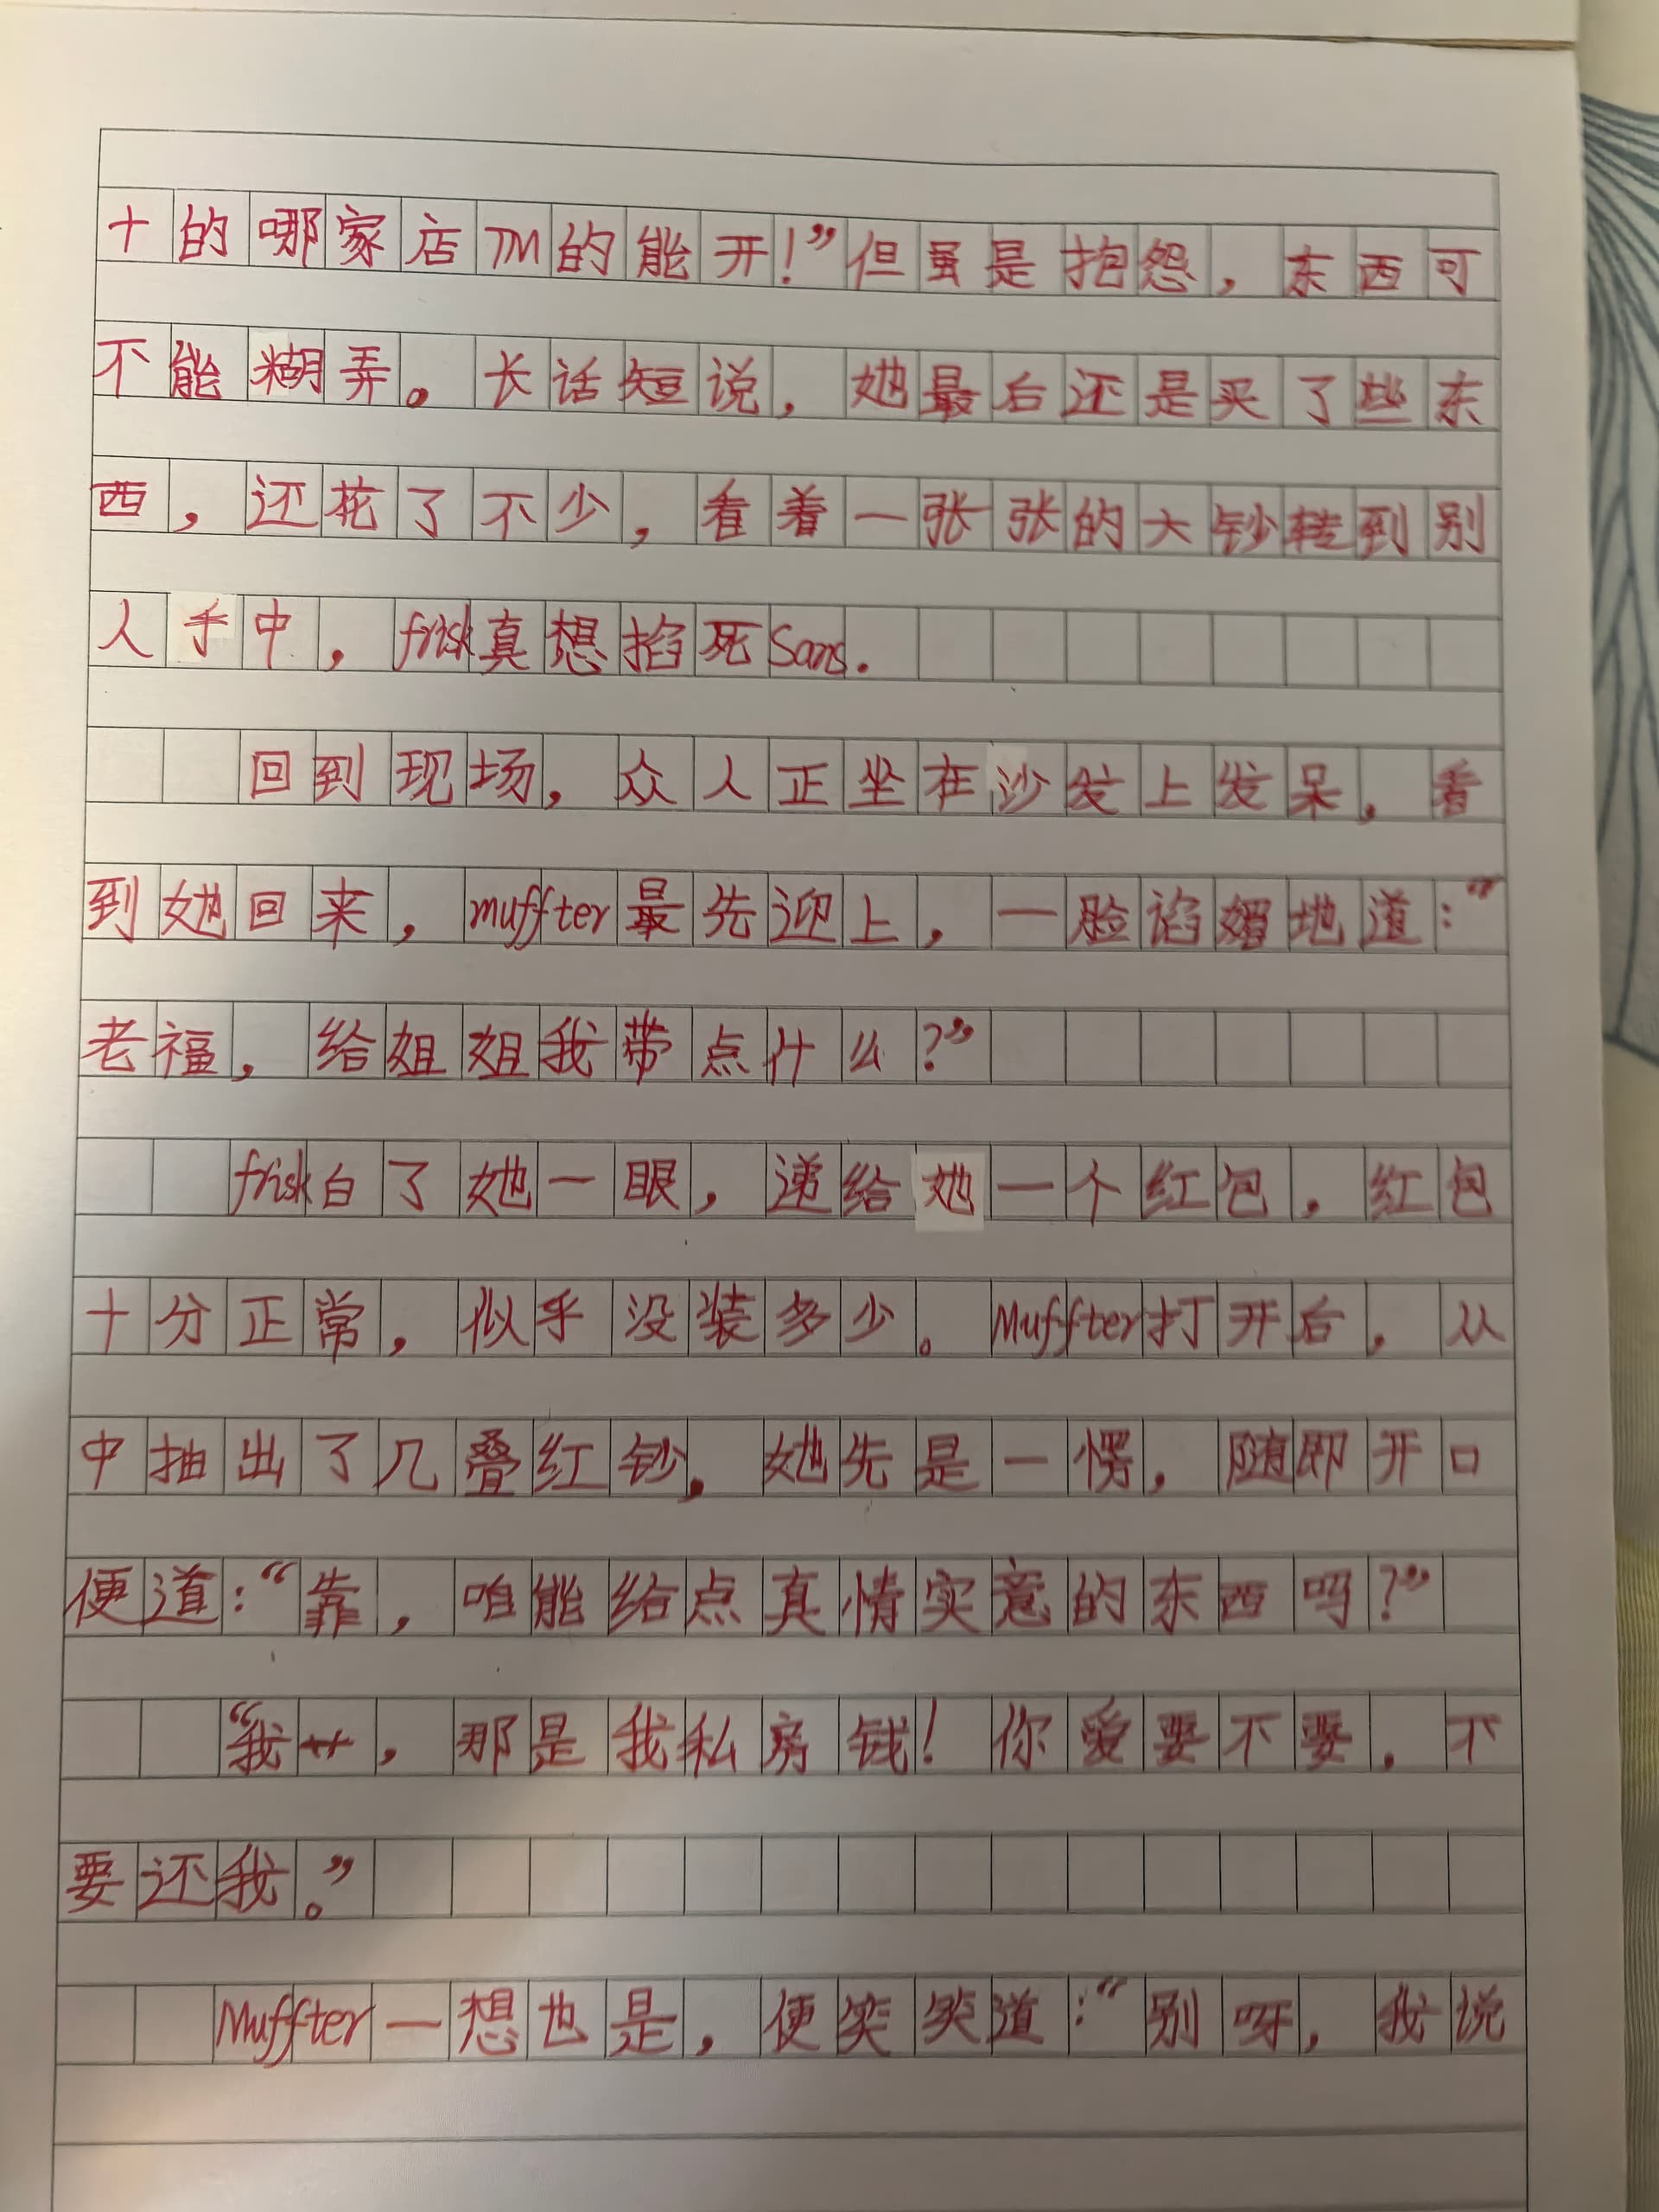 十的哪家店TM的能开！”但虽是抱怨，东西可
不能糊弄。长话短说，她最后还是买了些东
西，还花了不少，看着一张张的大钞转到别
人手中，frisk真想掐死Sans.
回到现场，众人正坐在沙发上发呆，看
到她回来，muffter最先迎上，一脸谄媚地道：“
老福，给姐姐我带点什么？”
frisk白了她一眼，递给她一个红包，红包
十分正常，似乎没装多少。Muffter打开后，从
中抽出了几叠红钞，她先是一愣，随即开口
便道：“靠，咱能给点真情实意的东西吗？”
“我艹，那是我私房钱！你爱要不要，不
要还我。”
Muffter一想也是，便笑笑道：“别呀，我说